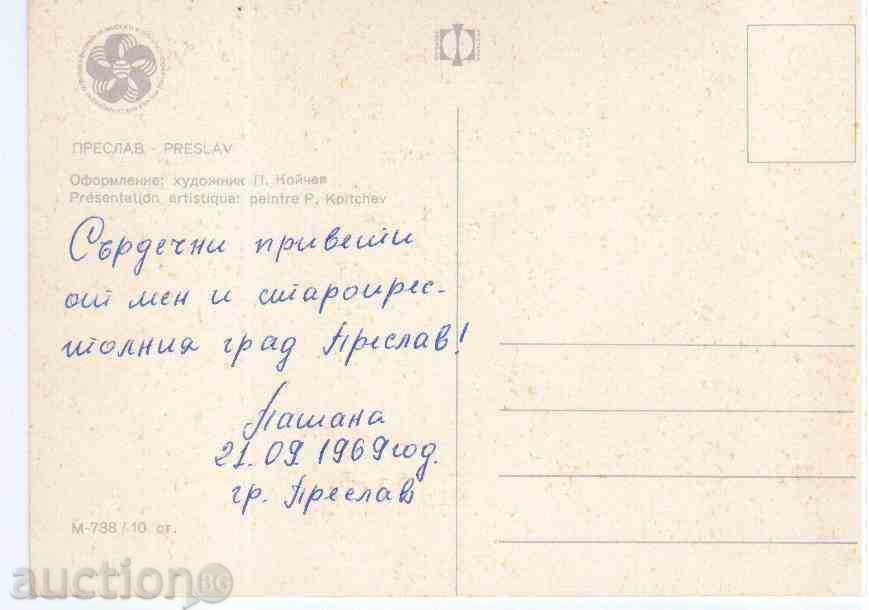 ПРЕСЛАВ - PRESLAV
Оформление: художник П. Койчев
Présentation artistique: peintre P. Koïtchev
Сърдечни привети
от мен и старопрес-
толния град Преслав!
Пашана
21.09.1969 год.
гр. Преслав
М-738 / 10 ст.
auction BG